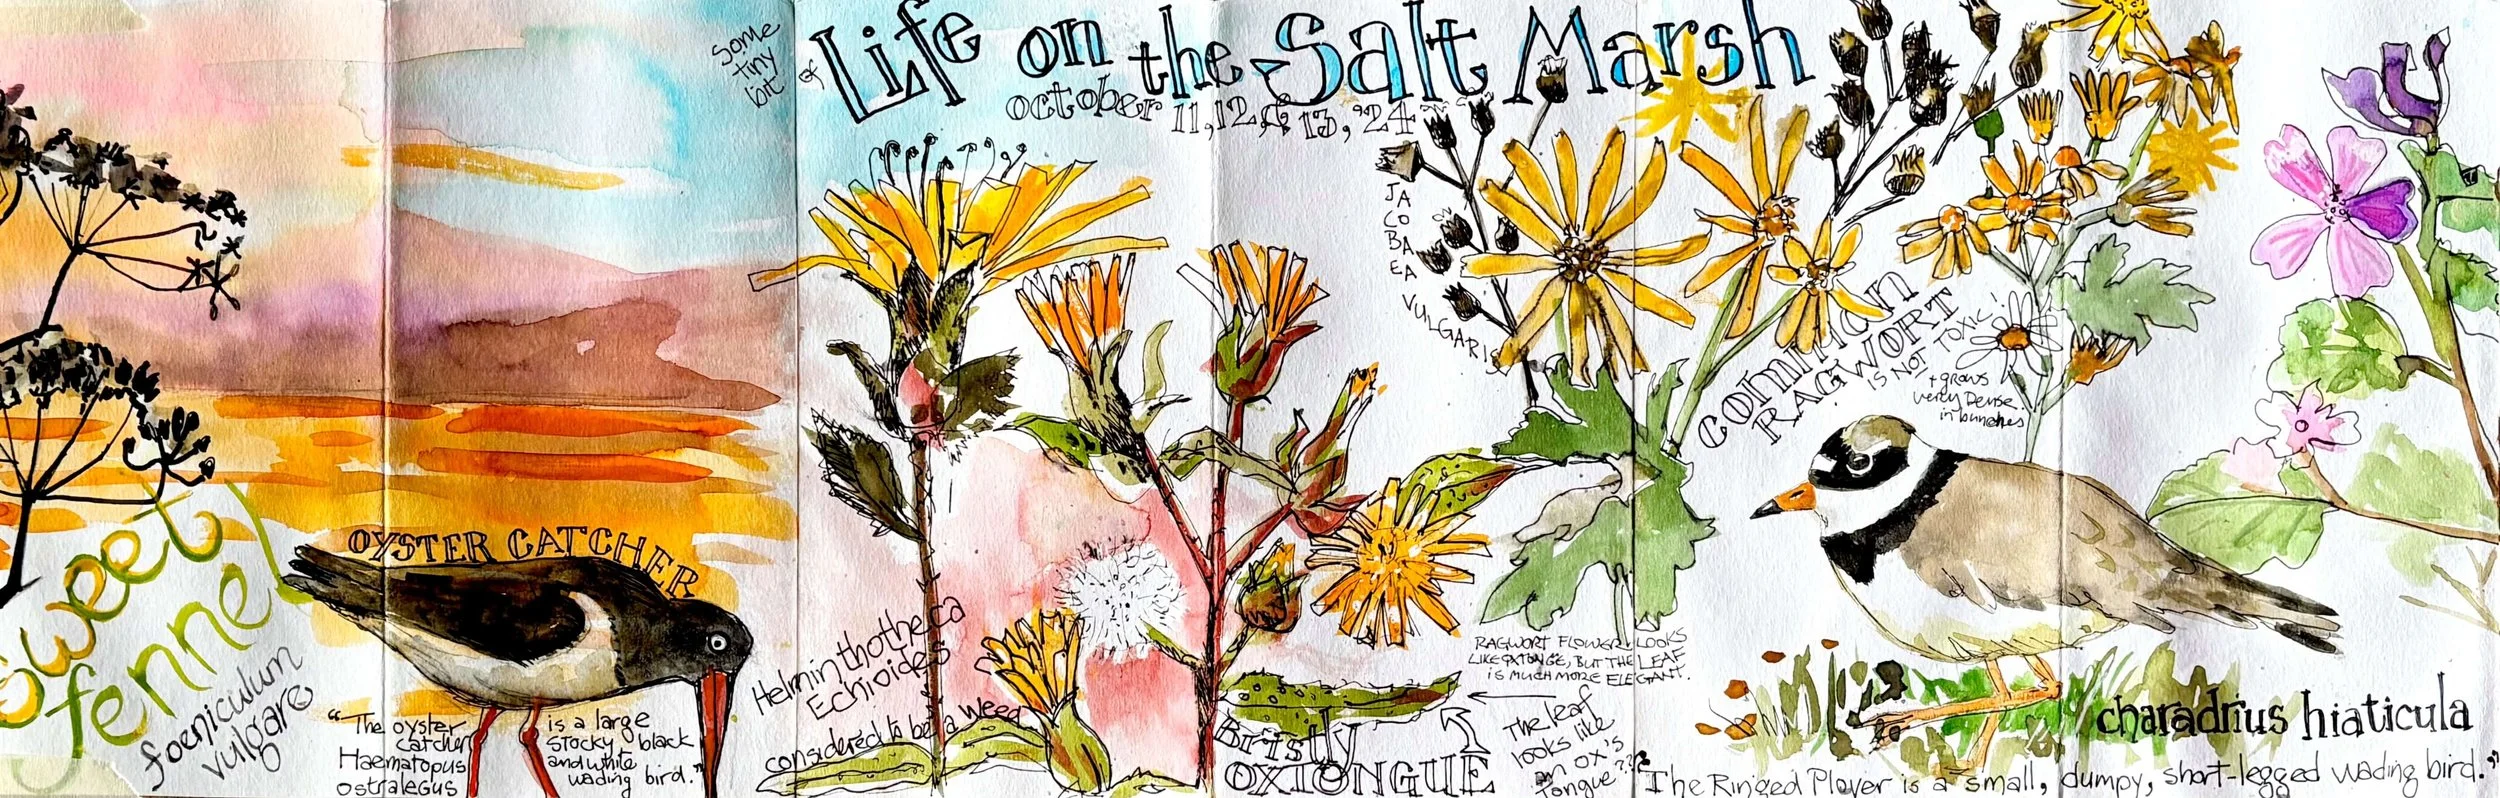 some
tiny
bit
of Life on the Salt Marsh
october 11, 12, & 13, '24
Sweet
fennel
foeniculum
vulgare
OYSTER CATCHER
"The oyster
catcher
Haematopus
ostralegus
is a large
stocky black
and white
wading bird."
Helminthotheca
Echioides
considered to be a weed
Bristly
OXTONGUE
The leaf
looks like
an ox's
tongue???
JA
CO
BA
EA
VULGARIS
COMMON
RAGWORT
IS NOT TOXIC!
+ grows
very Dense
in bunches
RAGWORT FLOWER LOOKS
LIKE OXTONGE, BUT THE LEAF
IS MUCH MORE ELEGANT.
charadrius hiaticula
"The Ringed Plover is a small, dumpy, short-legged wading bird."